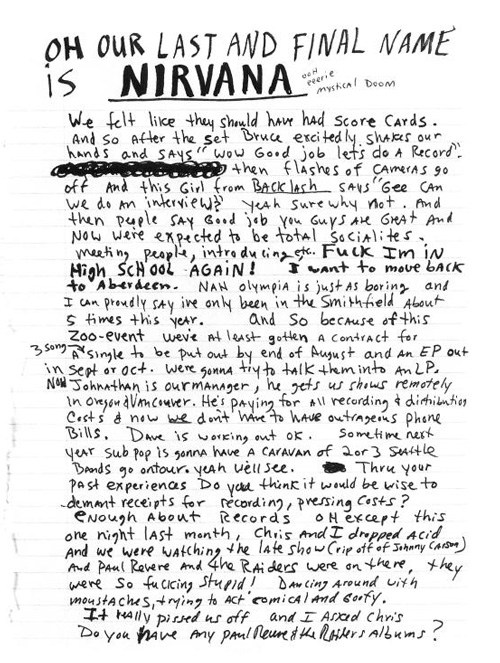 OH OUR LAST AND FINAL NAME
is NIRVANA ooh eeerie mystical Doom
We felt like they should have had score cards.
And so after the set Bruce excitedly shakes our
hands and says "wow Good job lets do A Record".
then flashes of cameras go
off And this Girl from BACKlash says "Gee can
we do an interview?" yeah sure why not. And
then people say Good job you guys are Great And
Now were expected to be total socialites.
meeting people, introducing etc. FUCK Im iN
High SCHOOL AGAiN! I want to move BACK
to Aberdeen. NAH olympia is just as boring and
I can proudly say ive only been in the Smithfield About
5 times this year. And So because of this
Zoo-event weve at least gotten a contract for
3 song A single to be put out by end of August and An EP out
in Sept or Oct. were gonna try to talk them into An LP.
Now Johnathan is our manager, he gets us shows remotely
In oregon & Vancouver. He's paying for All recording & distribution
Costs & now we dont have to have outrageous phone
Bills. Dave is working out ok. Sometime next
year Sub pop is gonna have a caravan of 2 or 3 Seattle
Bands go on tour. yeah well see. Thru your
past experiences Do you think it would be wise to
demant receipts for recording, pressing costs?
enough About Records OH except this
one night last month, Chris And I dropped acid
And we were watching the late show (rip off of Johnny Carson)
And Paul Revere and the RAiders were on there, they
were so fucking stupid! Dancing Around with
moustaches, trying to Act comical And Goofy.
It really pissed us off and I Asked Chris
Do you have Any paul Revere & the Raiders Albums?